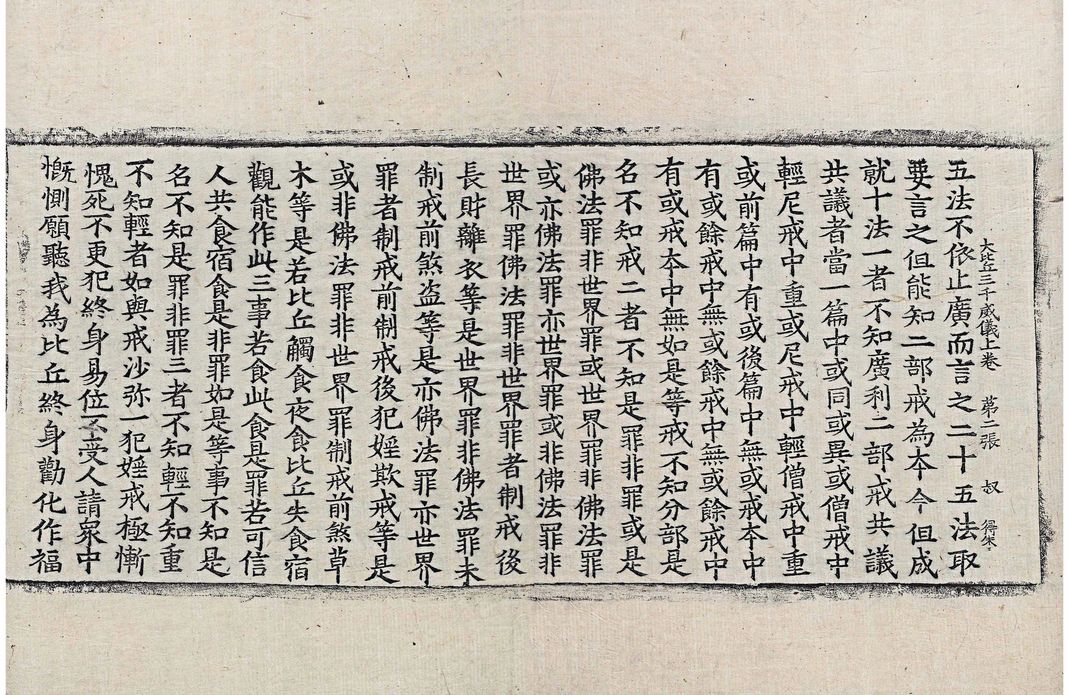 大比丘三千威儀上卷 第二張 叔 得来
五法不依止廣而言之二十五法取
要言之但能知二部戒為夲今但成
就十法一者不知廣利二部戒共議
共議者當一篇中或同或異或僧戒中
輕尼戒中重或尼戒中輕僧戒中重
或前篇中有或後篇中無或戒夲中
有或餘戒中無或餘戒中無或餘戒中
有或戒夲中無如是等戒不知分部是
名不知戒二者不知是罪非罪或是
佛法罪非世界罪或世界罪非佛法罪
或亦佛法罪亦世界罪或非佛法罪非
世界罪佛法罪非世界罪者制戒後
長財離衣等是世界罪非佛法罪未
制戒前煞盗等是亦佛法罪亦世界
罪者制戒前制戒後犯婬欺戒等是
或非佛法罪非世界罪制戒前煞草
木等是若比丘觸食夜食比丘失食宿
觀能作此三事若食此食是罪若可信
人共食宿食是非罪如是等事不知是
名不知是罪非罪三者不知輕不知重
不知輕者如與戒沙弥一犯婬戒極慚
愧死不更犯終身易位不受人請衆中
慨惻願聽我為比丘終身勸化作福